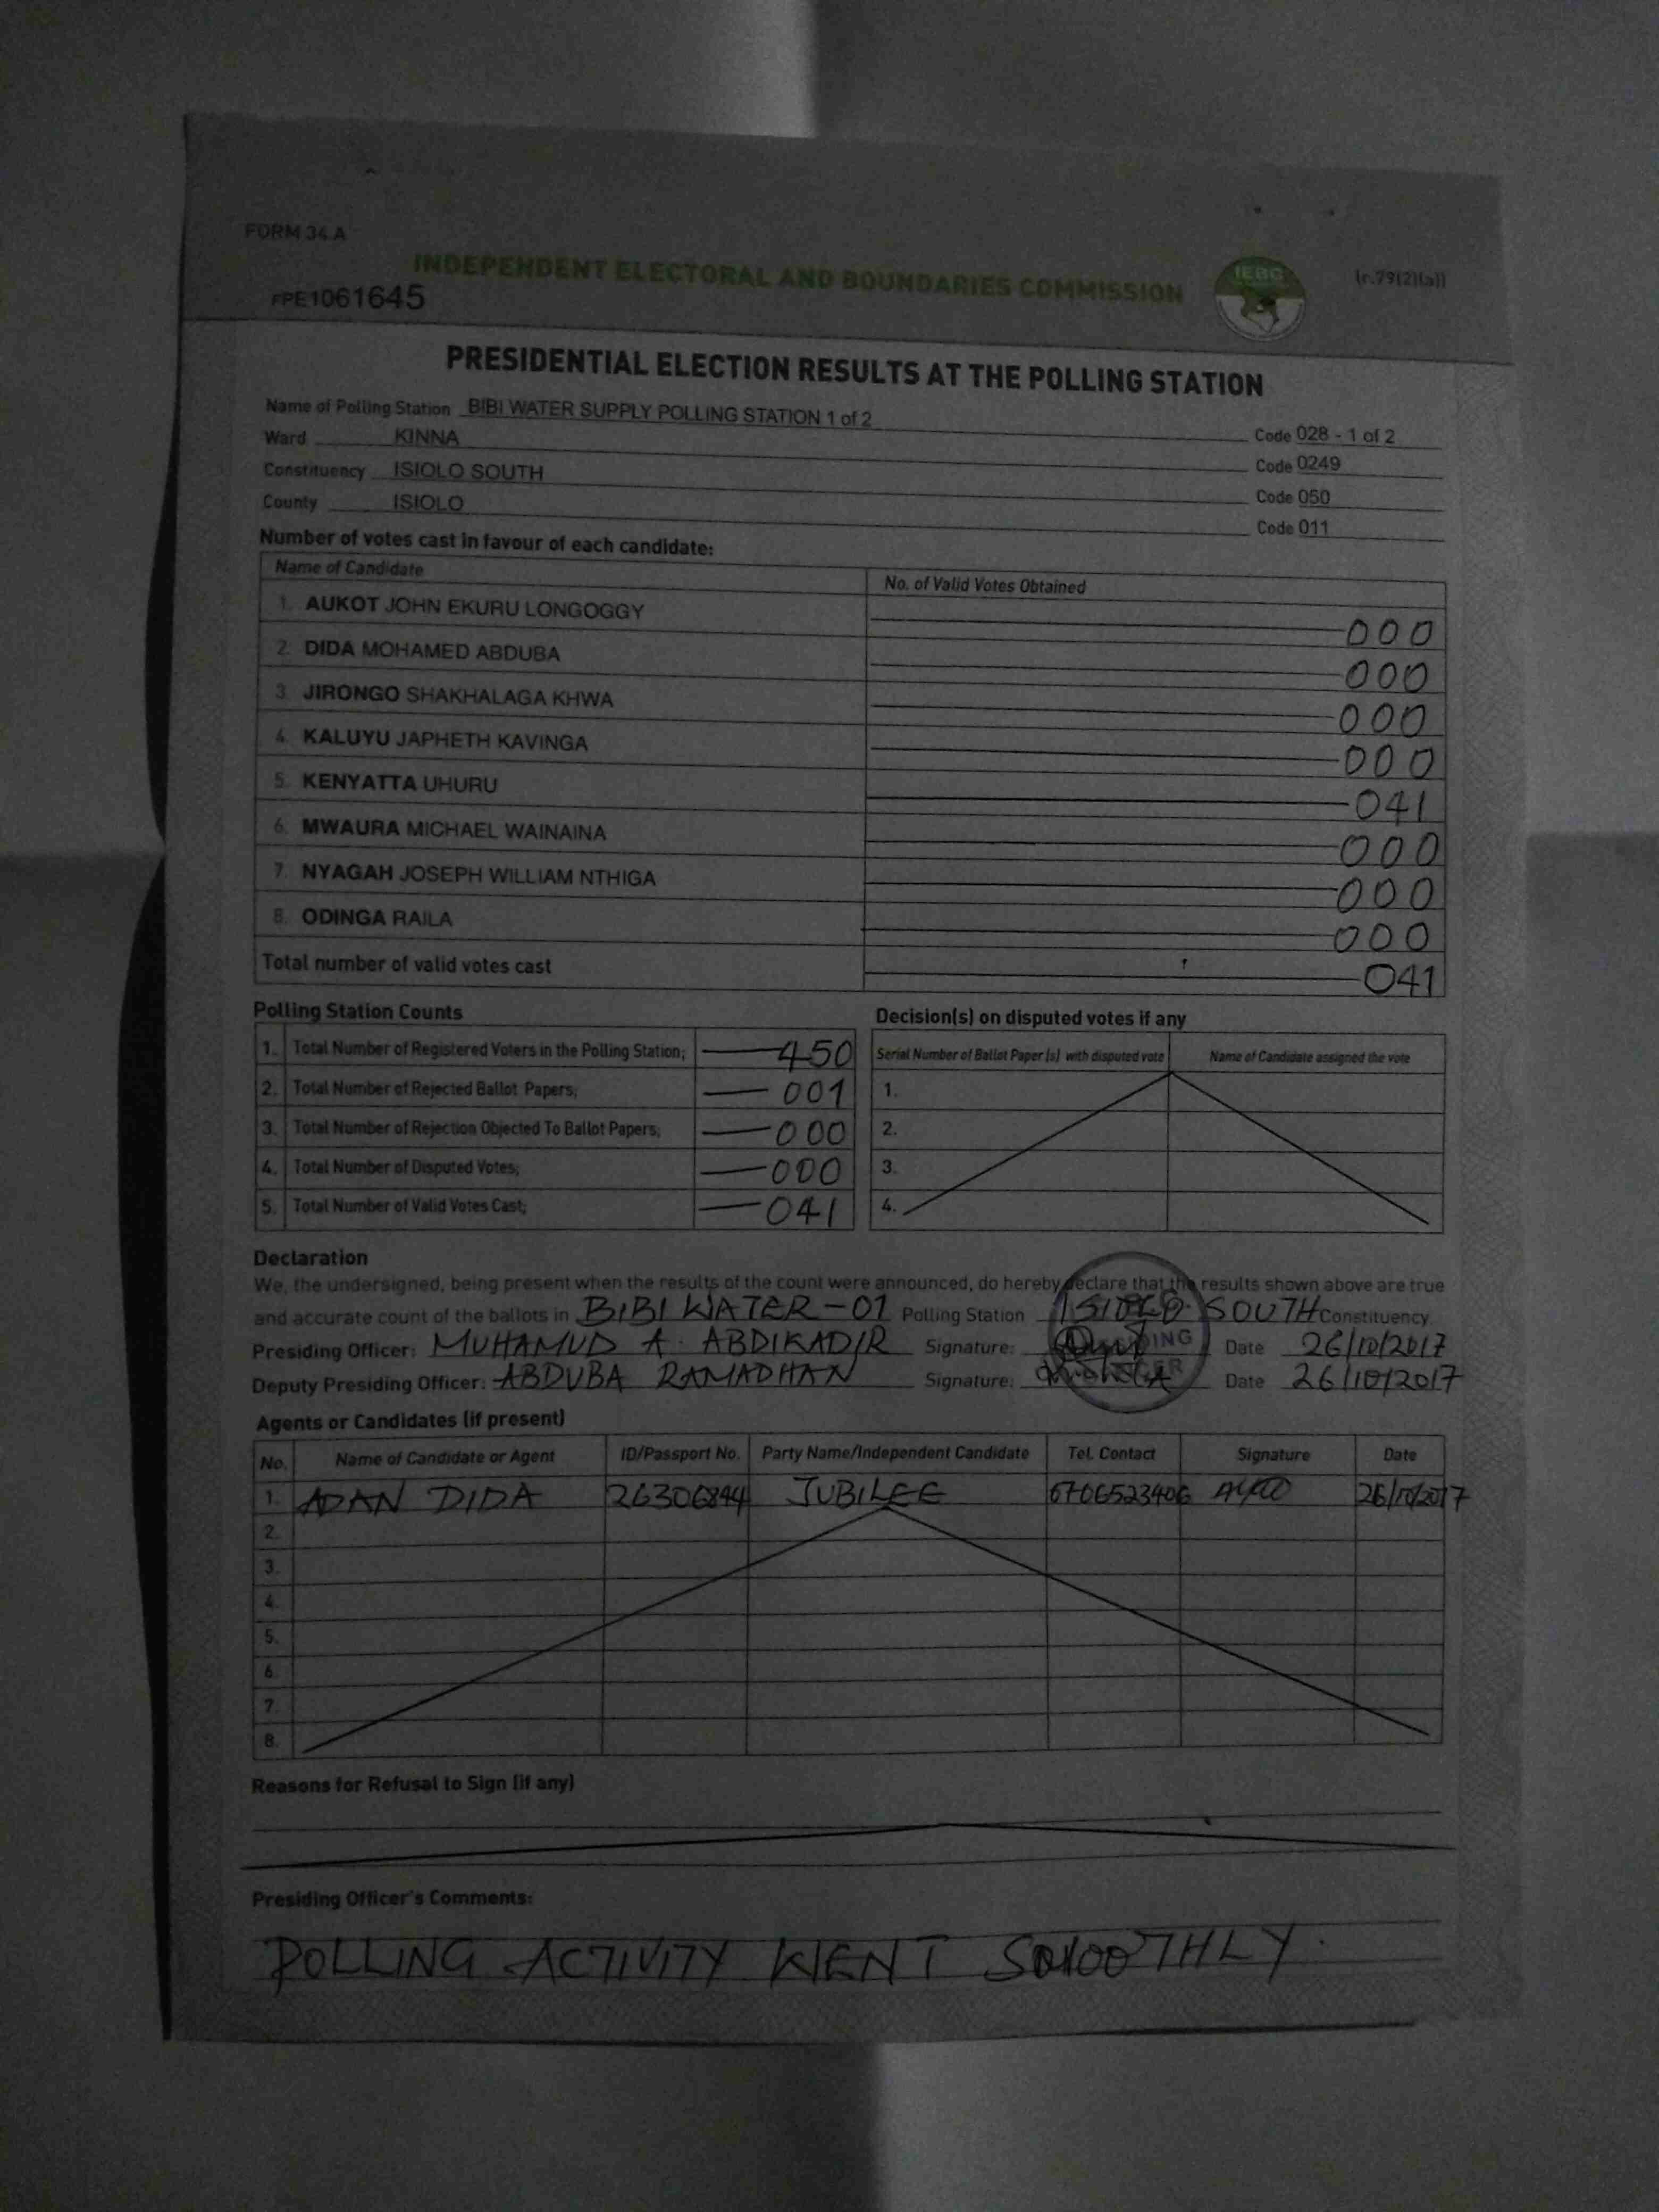 FORM 34.A
INDEPENDENT ELECTORAL AND BOUNDARIES COMMISSION
IEBC
(r.79(2)(a))
FPE1061645
PRESIDENTIAL ELECTION RESULTS AT THE POLLING STATION
Name of Polling Station BIBI WATER SUPPLY POLLING STATION 1 of 2 Code 028 - 1 of 2
Ward KINNA Code 0249
Constituency ISIOLO SOUTH Code 050
County ISIOLO Code 011
Number of votes cast in favour of each candidate:
Name of Candidate No. of Valid Votes Obtained
1. AUKOT JOHN EKURU LONGOGGY 000
2. DIDA MOHAMED ABDUBA 000
3. JIRONGO SHAKHALAGA KHWA 000
4. KALUYU JAPHETH KAVINGA 000
5. KENYATTA UHURU 041
6. MWAURA MICHAEL WAINAINA 000
7. NYAGAH JOSEPH WILLIAM NTHIGA 000
8. ODINGA RAILA 000
Total number of valid votes cast 041
Polling Station Counts
1. Total Number of Registered Voters in the Polling Station; 450
2. Total Number of Rejected Ballot Papers; 001
3. Total Number of Rejection Objected To Ballot Papers; 000
4. Total Number of Disputed Votes; 000
5. Total Number of Valid Votes Cast; 041
Decision(s) on disputed votes if any
Serial Number of Ballot Paper (s) with disputed vote Name of Candidate assigned the vote
1.
2.
3.
4.
Declaration
We, the undersigned, being present when the results of the count were announced, do hereby declare that the results shown above are true
and accurate count of the ballots in BIBI WATER-01 Polling Station ISIOLO SOUTH Constituency
Presiding Officer: MUHAMUD A. ABDIKADIR Signature: Date 26/10/2017
Deputy Presiding Officer: ABDUBA RAMADHAN Signature: Date 26/10/2017
Agents or Candidates (if present)
No. Name of Candidate or Agent ID/Passport No. Party Name/Independent Candidate Tel. Contact Signature Date
1. ADAN DIDA 26306844 JUBILEE 0706523406 26/10/2017
2.
3.
4.
5.
6.
7.
8.
Reasons for Refusal to Sign (if any)
Presiding Officer's Comments:
POLLING ACTIVITY WENT SMOOTHLY.